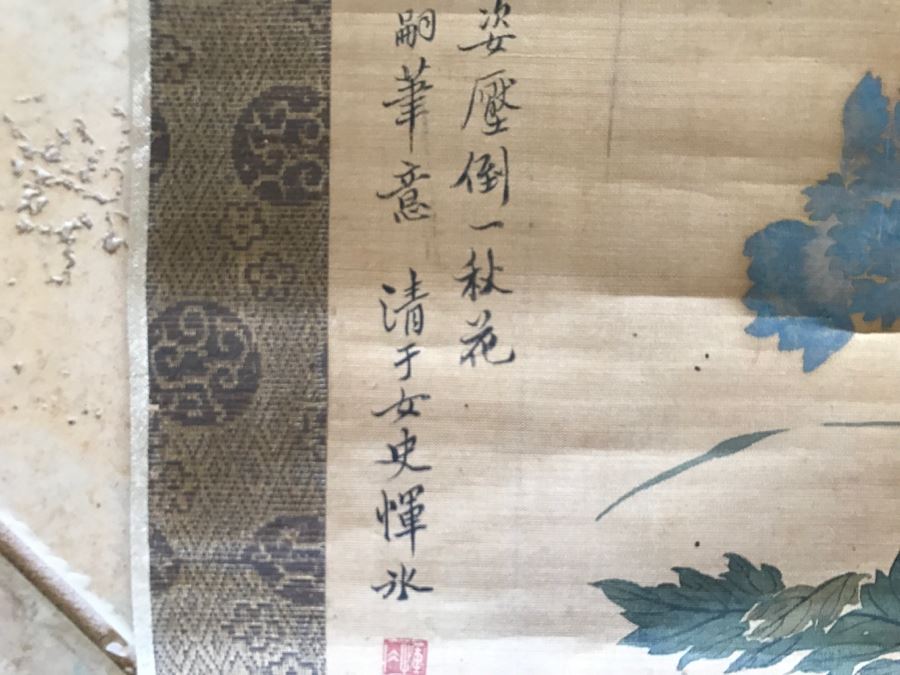 姿壓倒一秋花
嗣筆意 清于女史惲冰